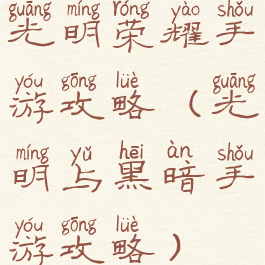 guāng míng róng yào shǒu
光明荣耀手
yóu gōng lüè guāng
游攻略（光
míng yǔ hēi àn shǒu
明与黑暗手
yóu gōng lüè
游攻略）